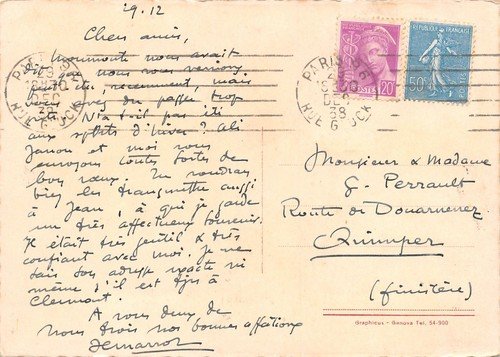 29.12
Chers amis,
nous avait
dit que nous nous verrions
peut être, récemment, mais
vous avez dû passer trop
vite. N'a-t-il pas été
aux sports d'hiver ?
Janon et moi vous
envoyons toutes sortes de
bons vœux. Tu voudras
bien les transmettre aussi
à Jean, à qui je garde
un très affectueux souvenir.
Il était très gentil & très
confiant avec moi. Je ne
sais son adresse exacte ni
même s'il est à
Clermont.
A vous deux de
nous trois nos bonnes affections
PARIS 96
RUE GLUCK
38
POSTES 20
REPUBLIQUE FRANÇAISE
50c
POSTES
Monsieur & Madame
G. Perrault
Route de Douarnenez
Quimper
(finistère)
Graphicus - Genova Tel. 54-900